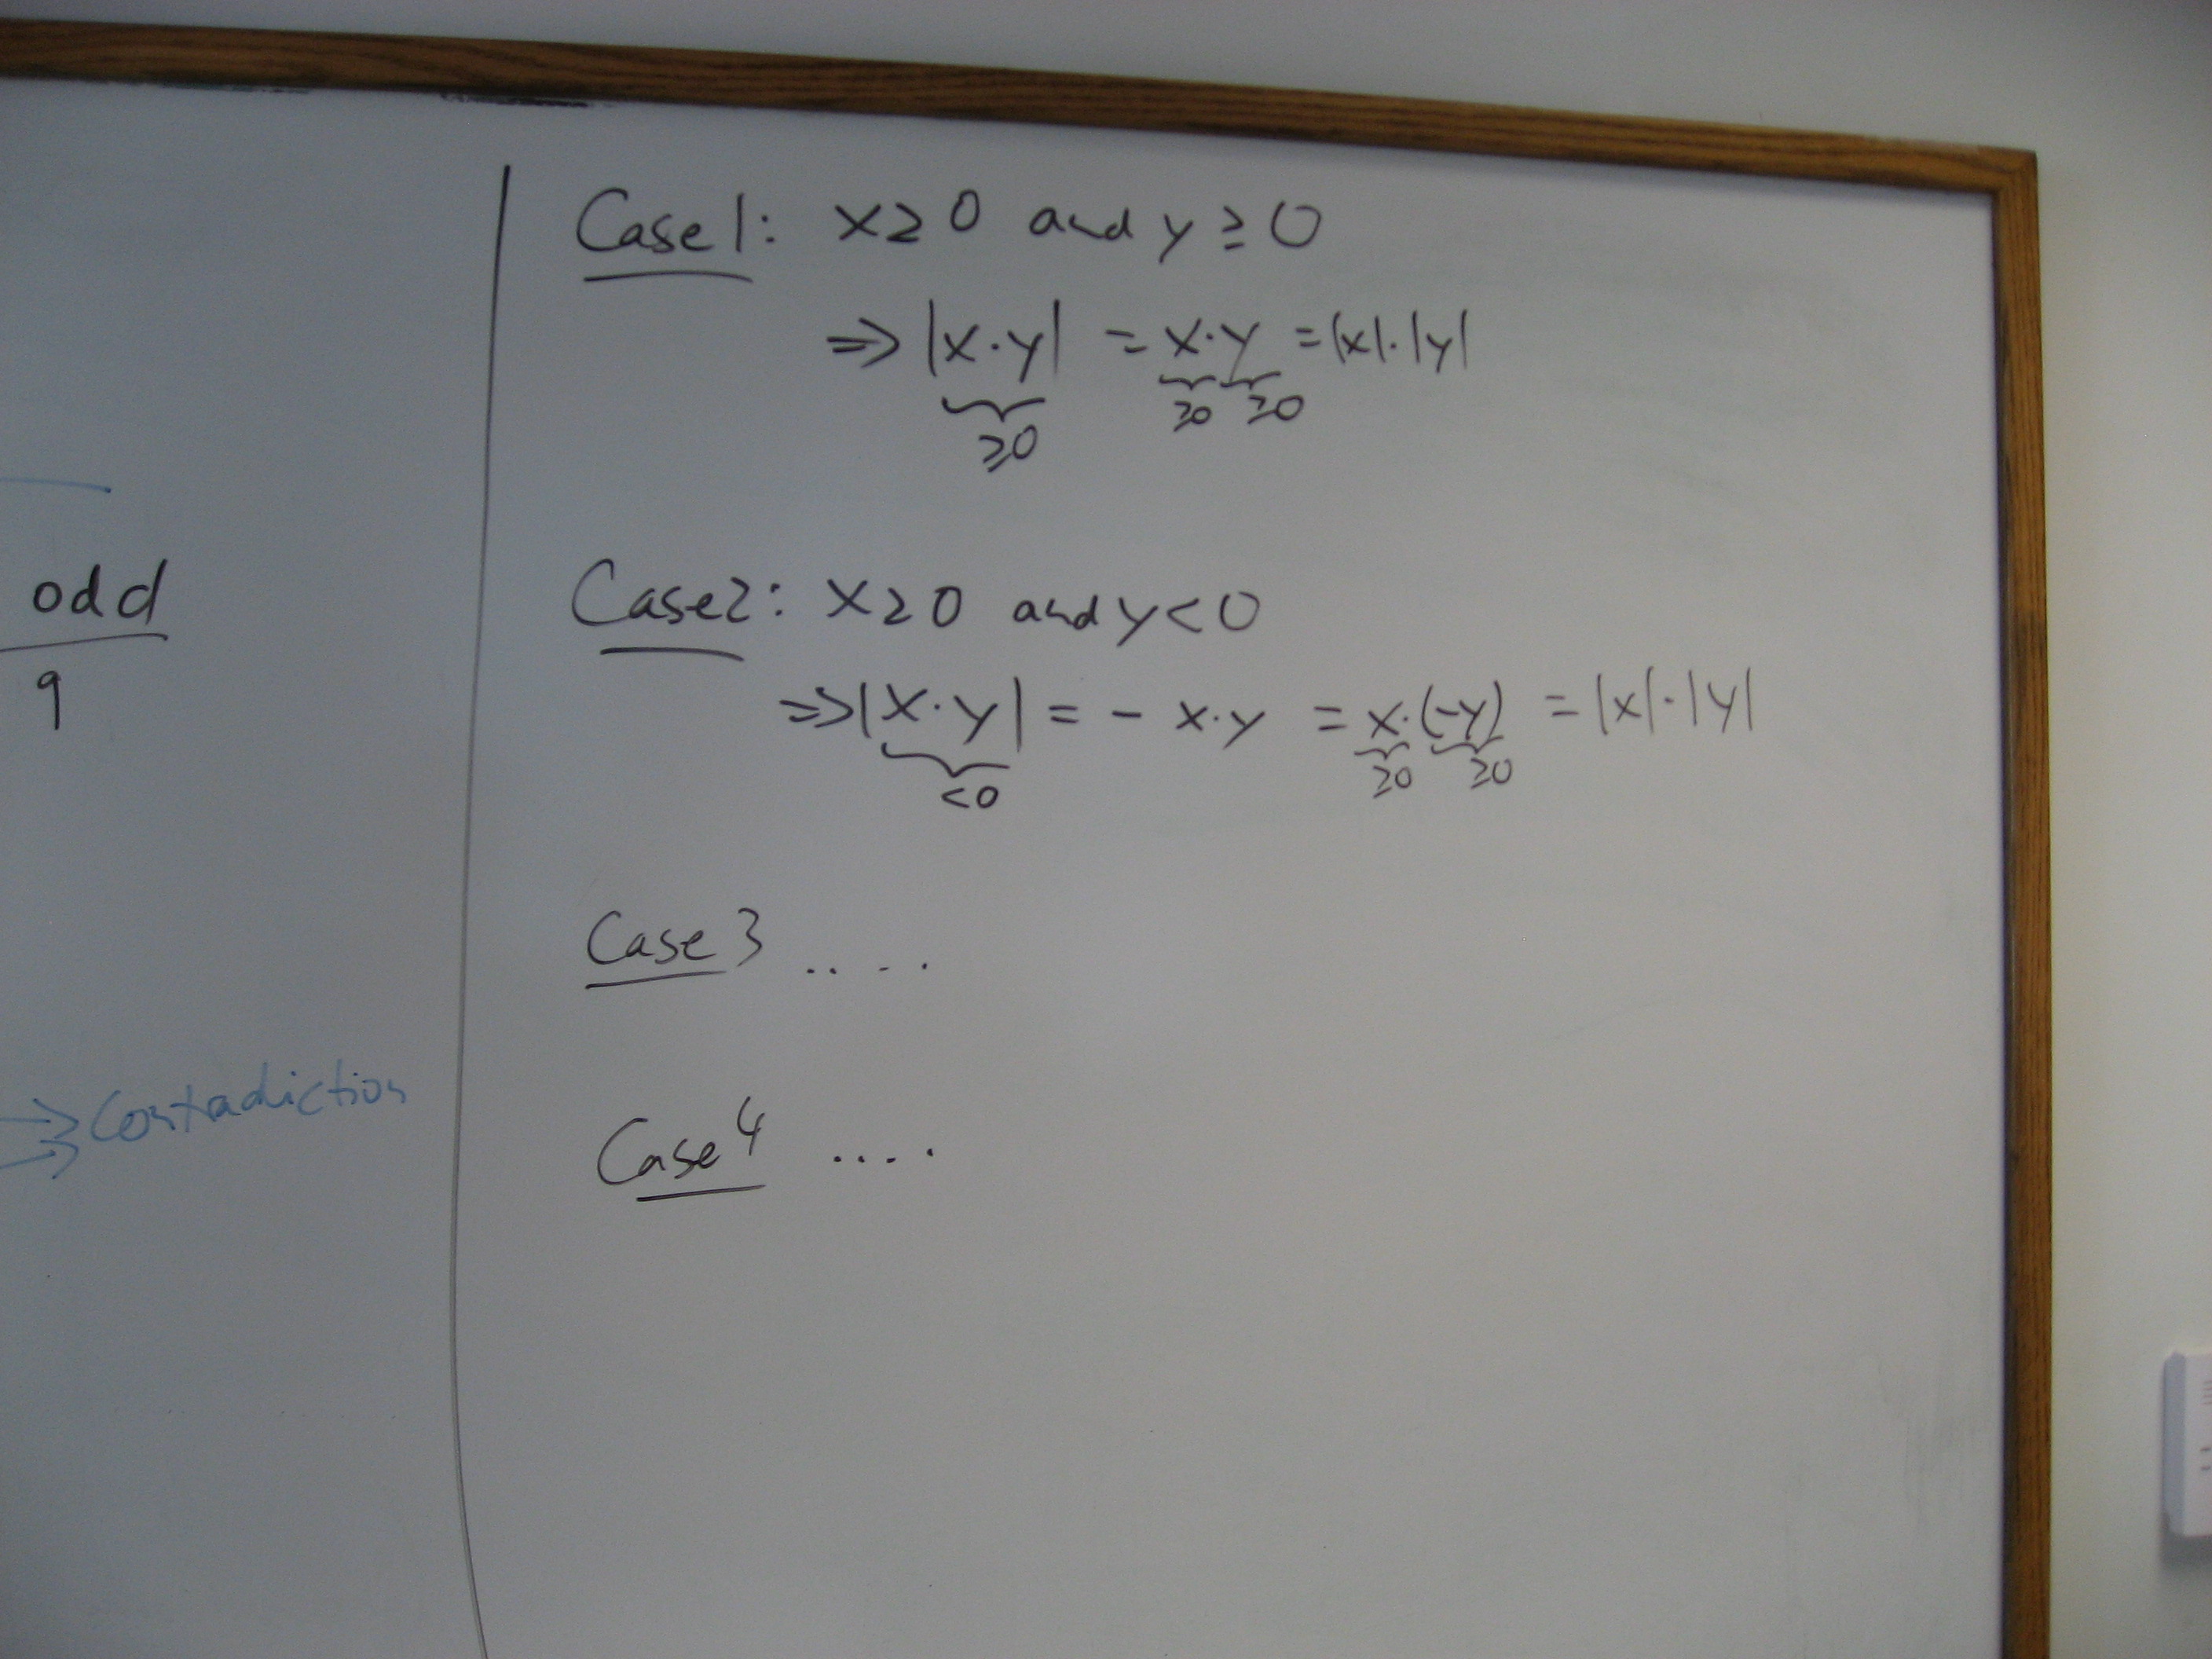 odd
9
⇒ Contradiction
Case 1: x ≥ 0 and y ≥ 0
⇒ |x·y| = x·y = |x|·|y|
≥0 ≥0 ≥0
Case 2: x ≥ 0 and y < 0
⇒ |x·y| = - x·y = x·(-y) = |x|·|y|
<0 ≥0 ≥0
Case 3 ....
Case 4 ....